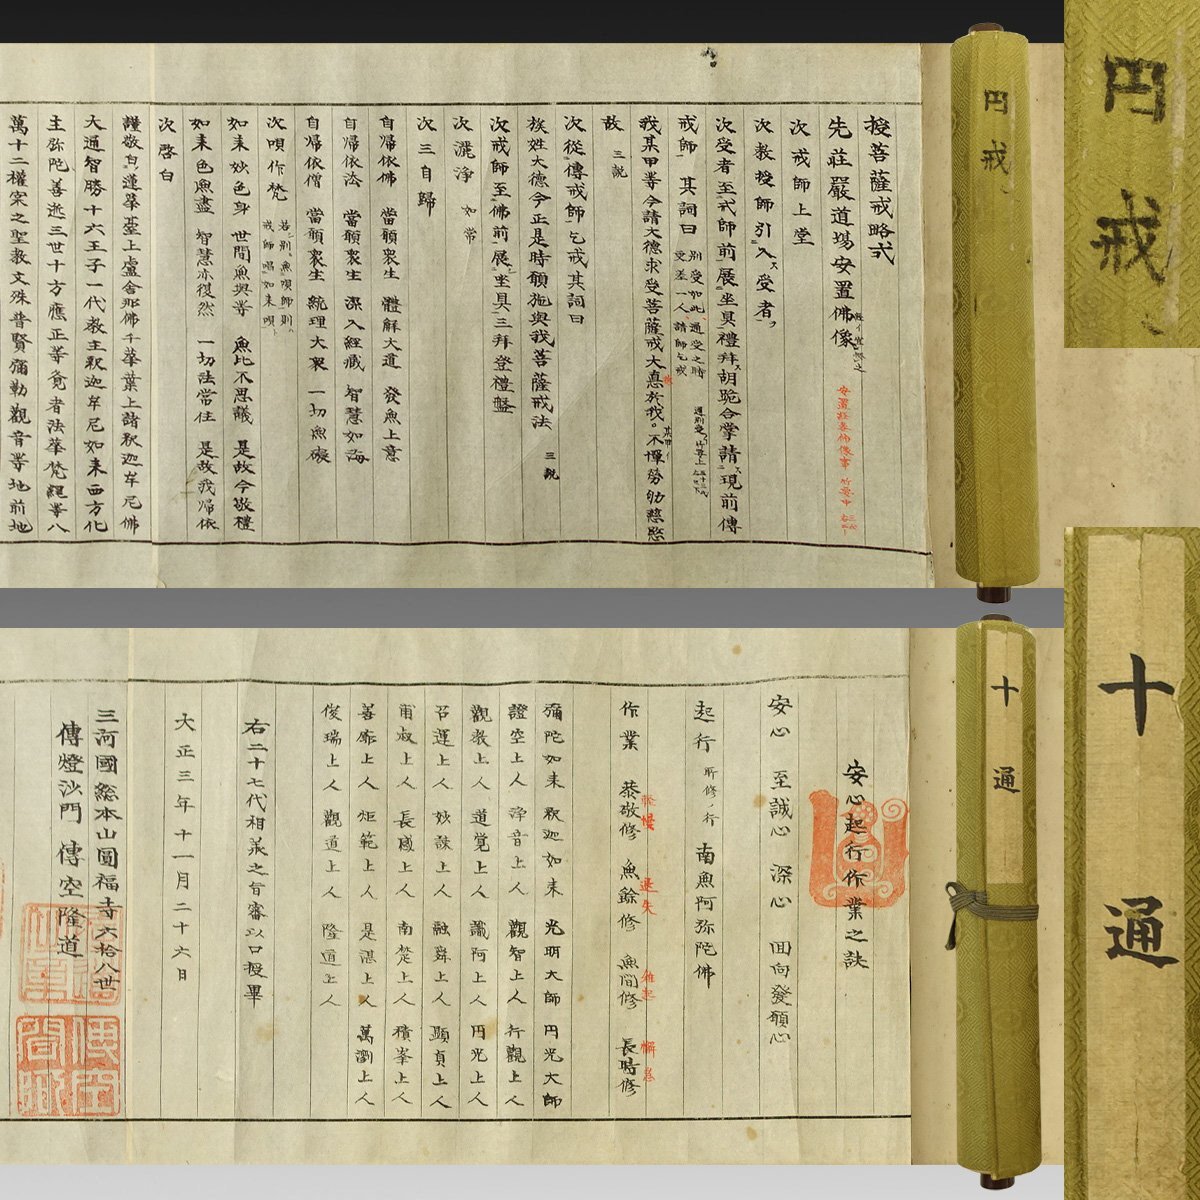 授菩薩戒略式
先莊嚴道場安置佛像
次戒師上堂
次教授師引入受者
次受者至戒師前展坐具禮拜胡跪合掌請現前傳
戒師 其詞曰
我某甲等今請大德求受菩薩戒大
不憚勞
故 三説
次從傳戒師乞戒其詞曰
族姓大德今正是時願施與我菩薩戒法 三説
次戒師至佛前展坐具三拜登禮盤
次灑淨 如常
次三自歸
自歸依佛 當願衆生 體解大道 發無上意
自歸依法 當願衆生 深入經藏 智慧如海
自歸依僧 當願衆生 統理大衆 一切無礙
次唄作梵
如来妙色身 世間無與等 無比不思議 是故今敬禮
如来色無盡 智慧亦復然 一切法常住 是故我歸依
次啓白
謹敬白蓮華臺上盧舍那佛千華葉上諸釈迦牟尼佛
大通智勝十六王子一代教主釈迦牟尼如来西方化
主弥陀善逝三世十方應正等覚者法華梵網等八
萬十二權実之聖教文殊普賢彌勒觀音等地前地
円戒
円戒
安心起行作業之訣
安心 至誠心 深心 回向發願心
起行 所修ノ行 南無阿弥陀佛
作業 恭敬修 無餘修 無間修 長時修
彌陀如来 釈迦如来 光明大師 円光大師
證空上人 淨音上人 觀智上人 行觀上人
觀教上人 道覚上人 識阿上人 円光上人
召運上人 妙諫上人 融舜上人 顯貞上人
甫叔上人 長感上人 南楚上人 積峯上人
善廓上人 炬範上人 是湛上人 萬瀾上人
俊瑞上人 觀道上人 隆道上人
右二十七代相承之旨審以口授畢
大正三年十一月二十六日
三河國総本山圓福寺六拾八世
傳燈沙門 傳空隆道
十通
十通